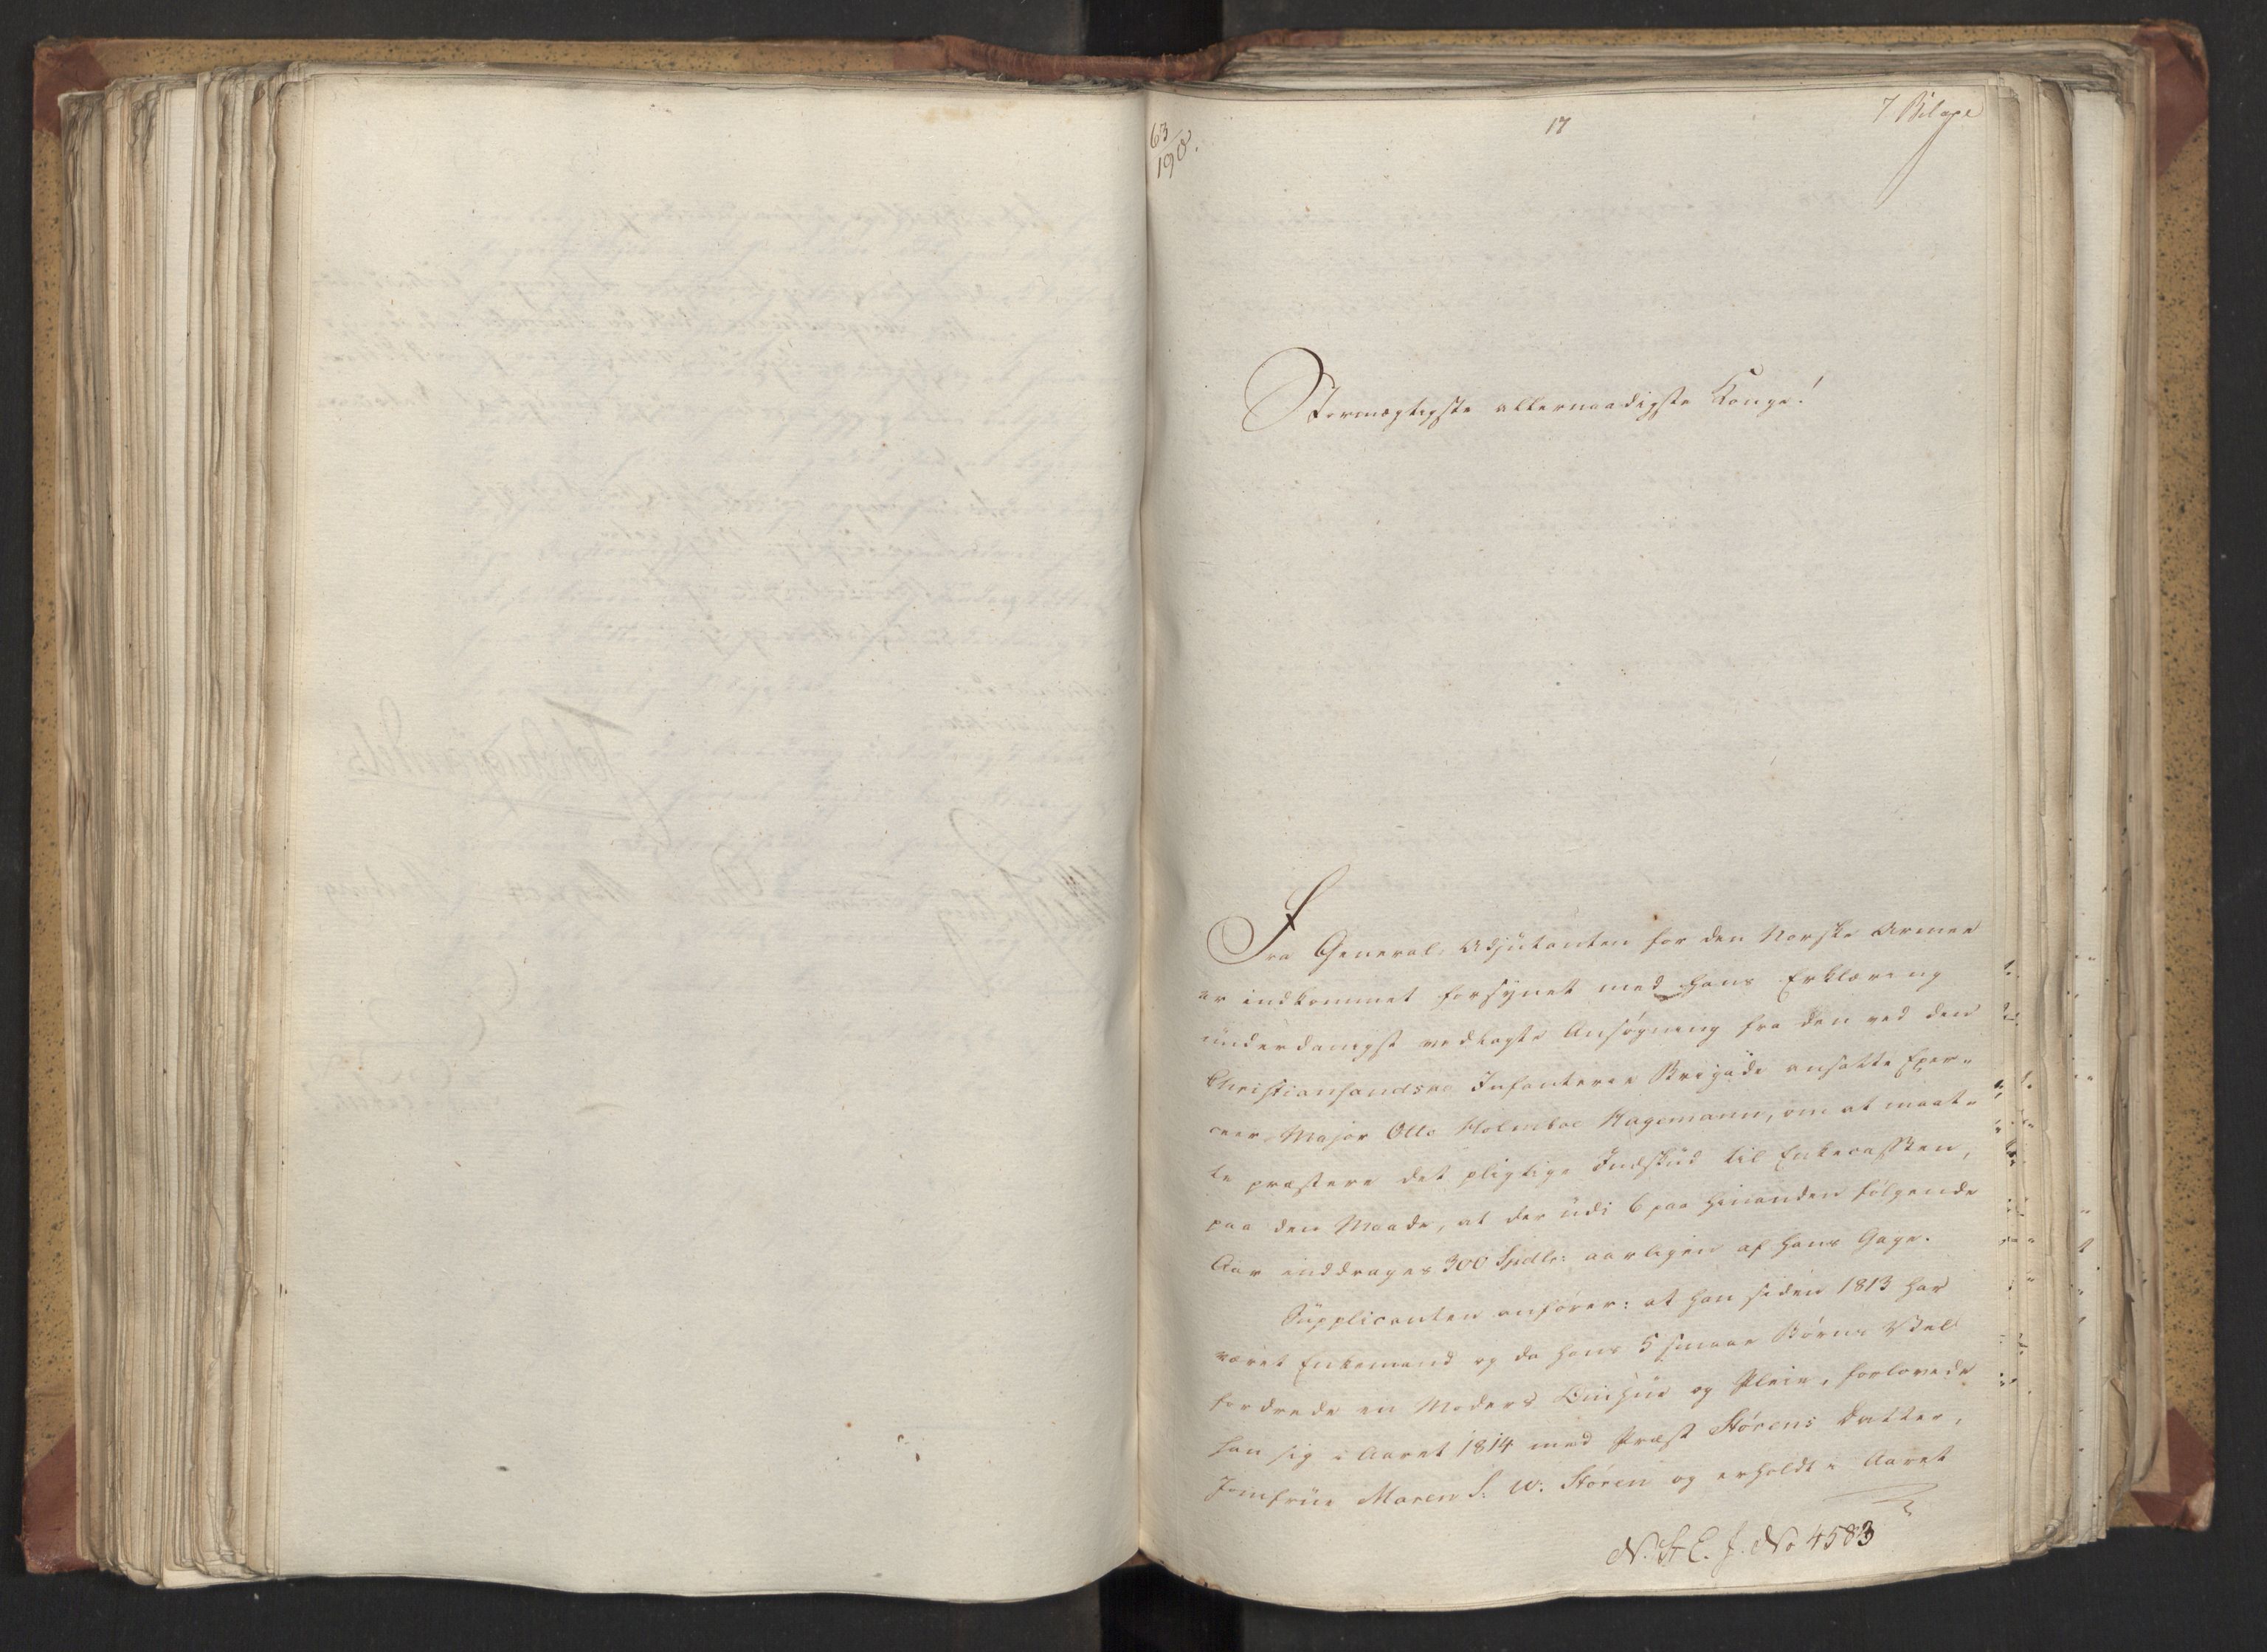 63/198.
17
7 Bilage
Stormægtigste allernaadigste Konge!
Fra General-Adjütanten for den Norske Armee
er indkommet forsynet med hans Erklæring
ünderdanigst vedlagte Ansøgning fra den ved den
Christiansandske Infanterie Brigade ansatte Exer-
ceer-Major Otto Holmboe Hagemann, om at maat-
te præstere det pligtige Indskud til Enkecassen,
paa den Maade, at der üdi 6 paa hinanden følgende
Aar inddrages 300 Spdlr: aarligen af hans Gage.
Süpplicanten anfører: at han siden 1813 har
været Enkemand og da hans 5 smaae Børns Vel
fordrede en Moders Omhüe og Pleie, forlovede
han sig i Aaret 1814 med Præst Størens Datter,
Jomfrüe Maren S. W. Støren og erholdt i Aaret
N. St. E. J. No 4583